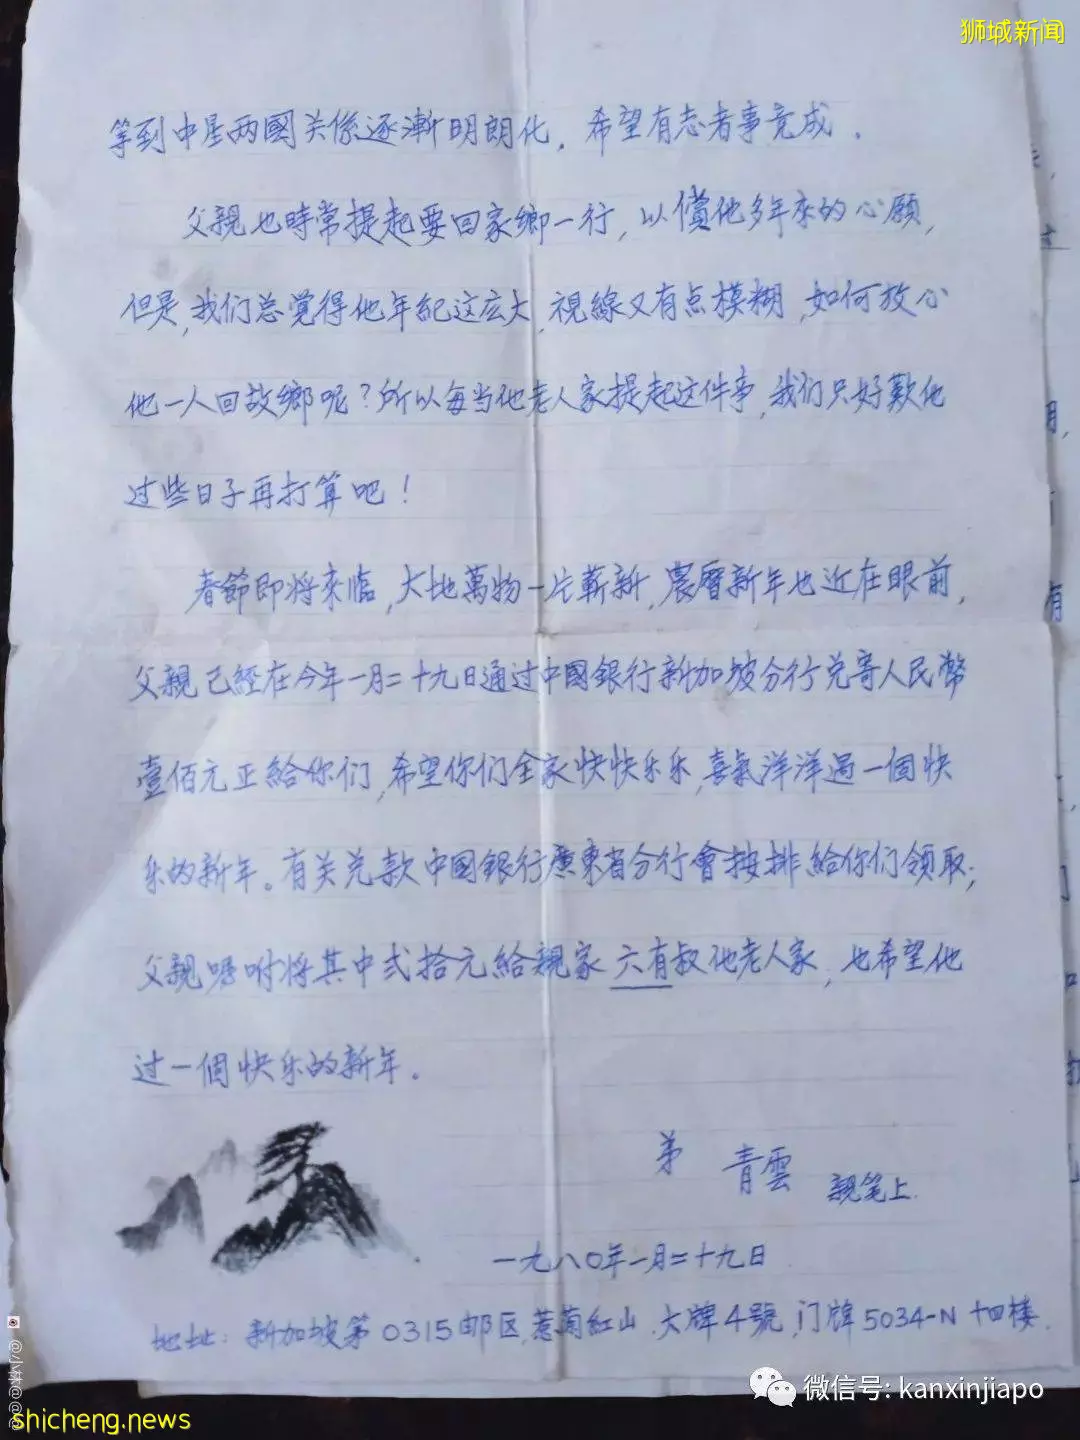 狮城新闻
等到中星两國关係逐漸明朗化，希望有志者事竟成．
父親也時常提起要回家鄉一行，以償他多年来的心願，
但是，我们总覺得他年紀这庅大，視線又有点模糊，如何放心
他一人回故鄉呢？所以每当他老人家提起这件事，我们只好歎他
过些日子再打算吧！
春節即将來臨，大地萬物一片嶄新，農曆新年也近在眼前，
父親已經在今年一月二十九日通过中國銀行新加坡分行兑寄人民幣
壹佰元正給你们，希望你们全家快快乐乐，喜氣洋洋過一個快
乐的新年。有关兑款中國銀行廣東省分行會按排給你们領取；
父親嘱咐将其中弍拾元給親家六有叔他老人家，也希望他
过一個快乐的新年．
弟 青雲 親笔上．
一九八〇年一月二十九日
地址：新加坡第0315邮区，惹蘭紅山．大牌4號，门牌5034-N 十四楼．
@小林@@@
微信号: kanxinjiapo
shicheng.news